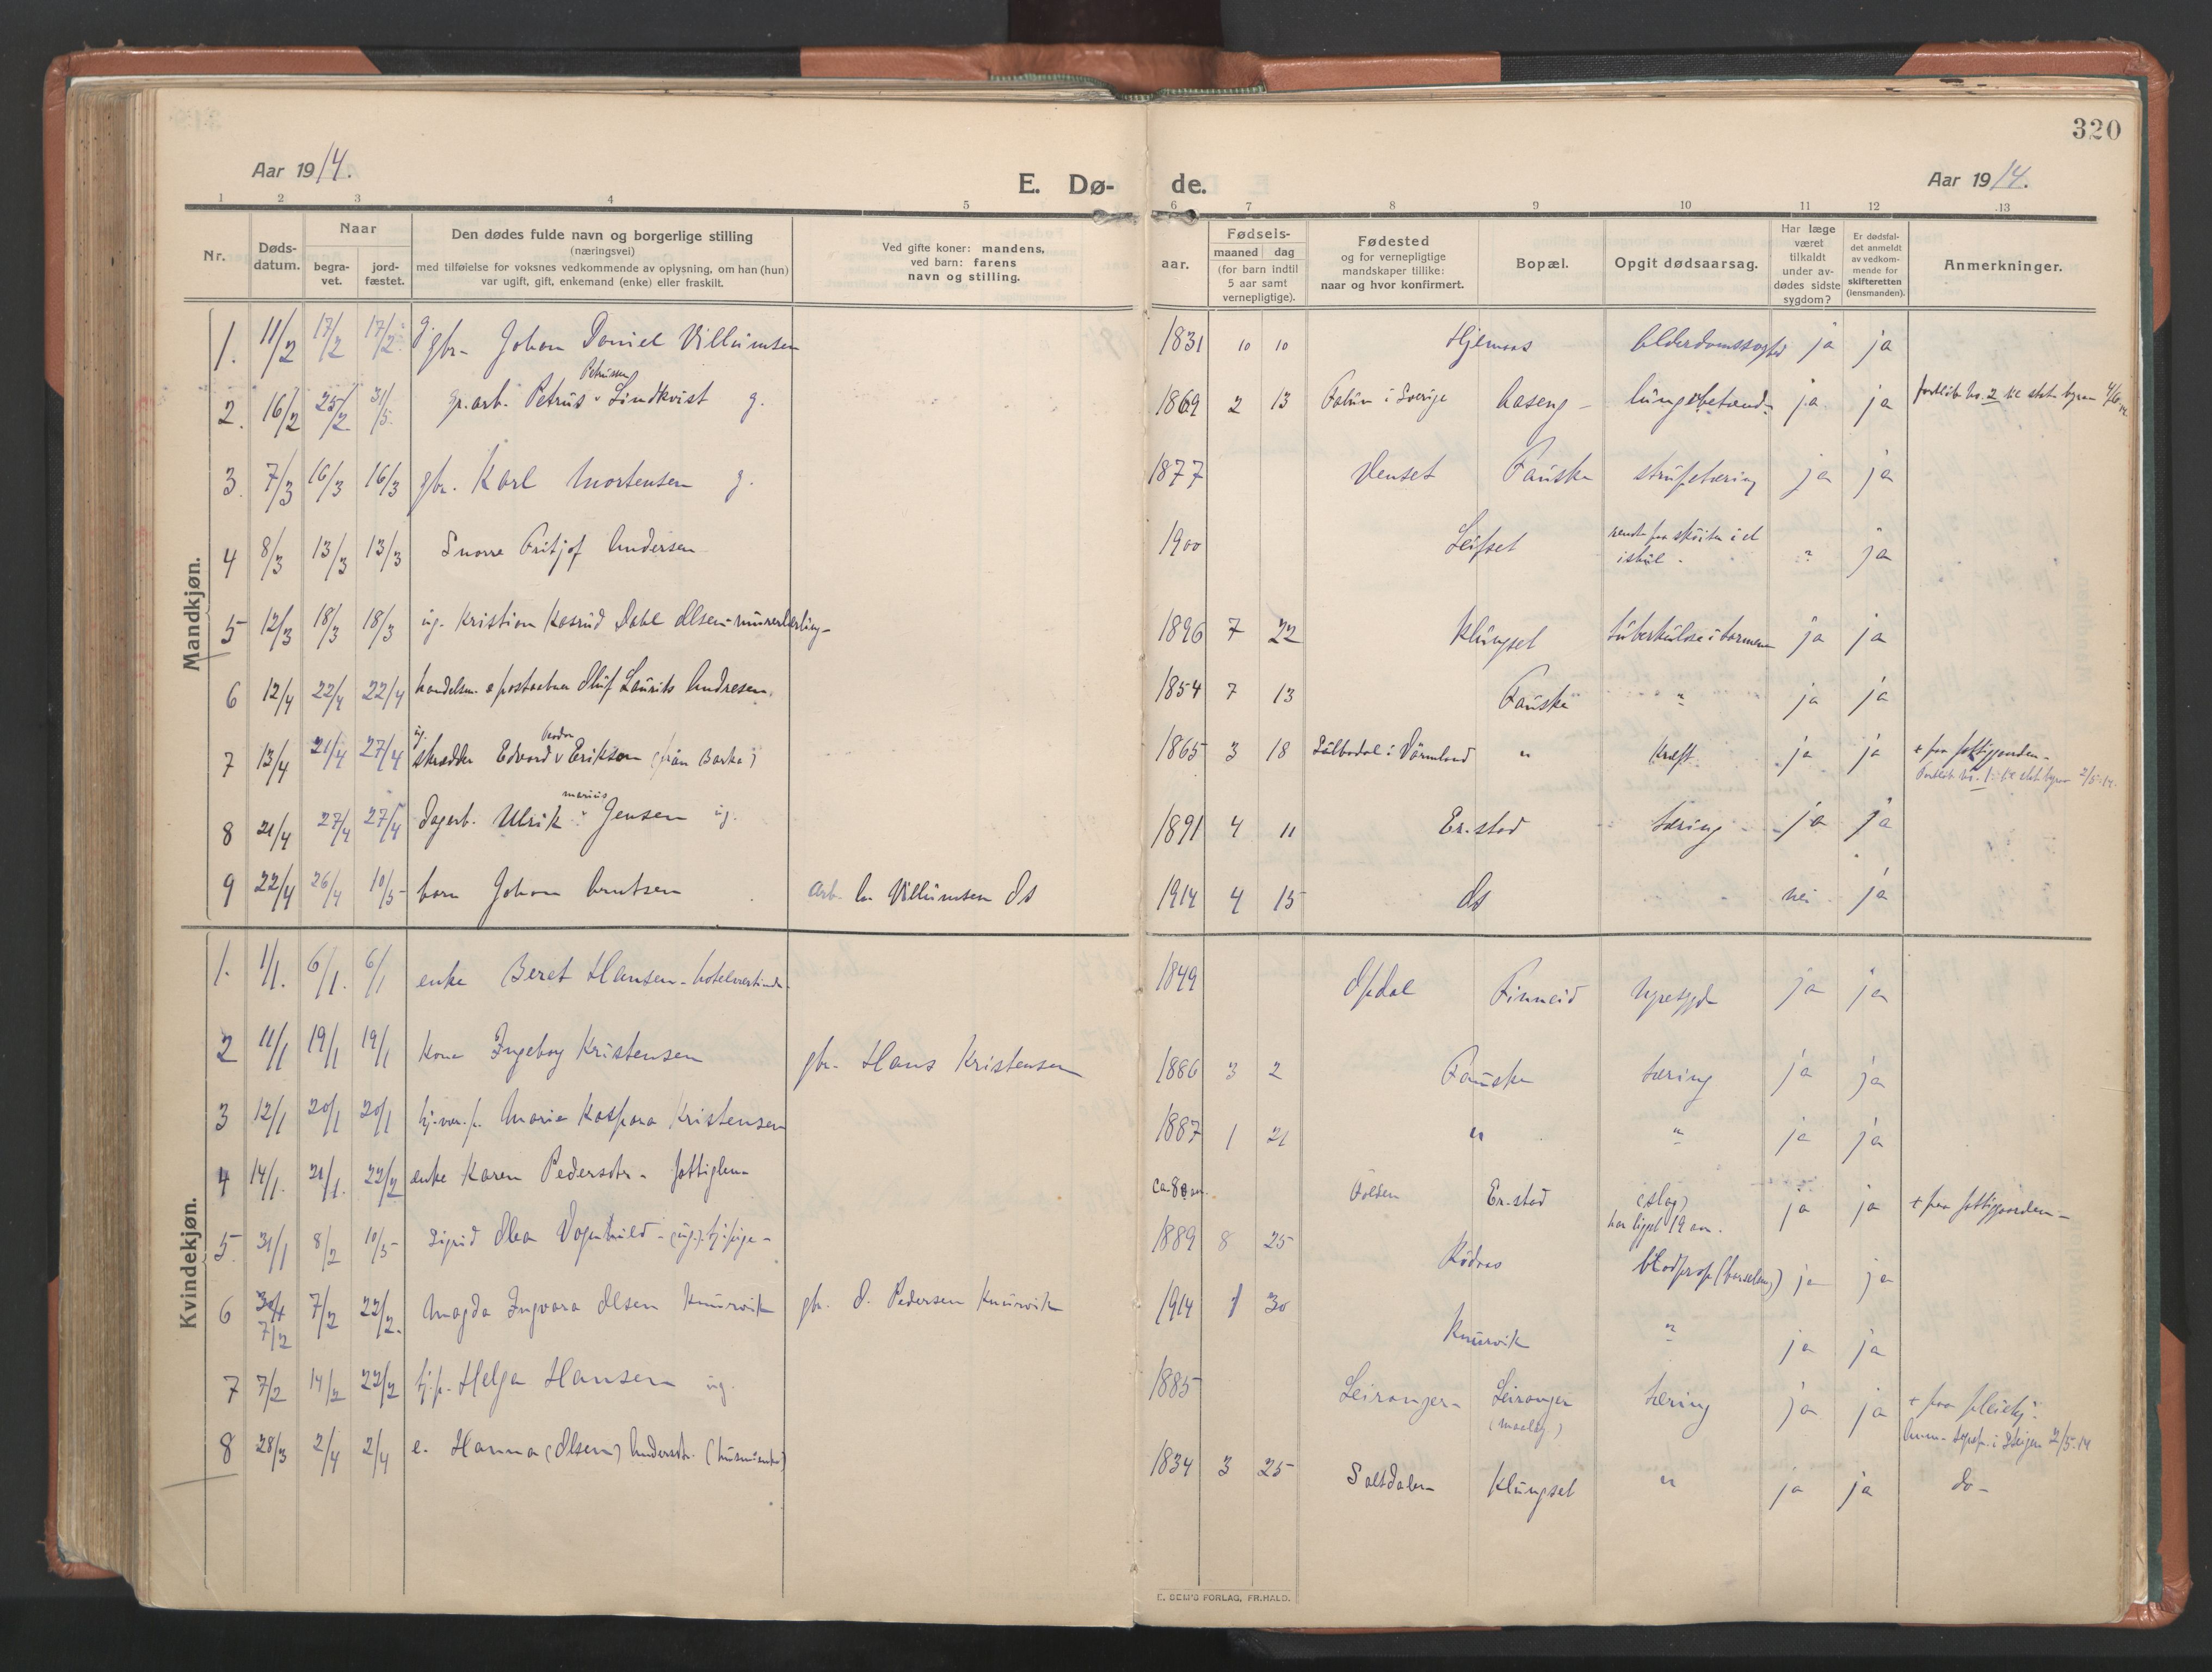 320
Aar 1914.
E. Dø- de.
Aar 1914.
1 2 3 4 5 6 7 8 9 10 11 12 13
Nr.
Døds-
datum.
Naar
begra-
vet.
jord-
fæstet.
Den dødes fulde navn og borgerlige stilling
(næringsvei)
med tilføielse for voksnes vedkommende av oplysning, om han (hun)
var ugift, gift, enkemand (enke) eller fraskilt.
Ved gifte koner: mandens,
ved barn: farens
navn og stilling.
Fødsels-
aar.
maaned dag
(for barn indtil
5 aar samt
vernepligtige).
Fødested
og for vernepligtige
mandskaper tillike:
naar og hvor konfirmert.
Bopæl.
Opgit dødsaarsag.
Har læge
været
tilkaldt
under av-
dødes sidste
sygdom?
Er dødsfal-
det anmeldt
av vedkom-
mende for
skifteretten
(lensmanden).
Anmerkninger.
Mandkjøn.
1. 11/2 17/2 17/2 gbr. Johan Daniel Villumsen 1831 10 10 Hjemaas Alderdomssvaghed ja ja
2. 16/2 25/2 31/5 gr.arb. Petrus Petrussen Lindkvist g. 1869 2 13 Falun i Sverige Aaseng lungebetænd. ja ja
3. 7/3 16/3 16/3 gbr. Karl Mortensen g. 1877 Venset Fauske strupetæring ja ja
4 8/3 13/3 13/3 Snorre Fritjof Andersen 1900 Leifset
rendte paa skøiter i et
ishul. " ja
5 12/3 18/3 18/3 ug. Kristian Kasrud Dahl Olsen murerlærling 1896 7 22 Klungset tuberkulose i tarmene ja ja
6 12/4 22/4 22/4 handelsm. o postaabner Oluf Laurits Andresen 1854 7 13 Fauske " ja ja
7 13/4 21/4 27/4 ug. skrædder Edvard v Erikson (från Barka) 1865 3 18 i Värmland " kræft ja ja + paa fattiggaarden
8 21/4 27/4 27/4 dagarb. Ulrik marius Jensen ug. 1891 4 11 Er.stad tæring ja ja
9 22/4 26/4 10/5 barn Johan Arntsen arb. A. Villumsen Ds 1914 4 15 ds nei ja
Kvindekjøn.
1. 1/1. 6/1. 6/1 enke Beret Hansen - hotelvertinde 1849 Opdal Finneid nyresygd. ja ja
2 11/1 19/1 19/1 kone Ingeborg Kristensen gbr. Hans Kristensen 1886 3 2 Fauske tæring ja ja
3 12/1 20/1 20/1 Marie Kaspara Kristensen 1887 1 21 " " ja ja
4 14/1. 21/1. 22/2 enke Karen Pedersdtr. - fattiglem ca. 80 aar. Folden Er.stad (slag)
har ligget 19 aar. ja ja + paa fattiggaarden
5. 31/1 8/2 10/5 Sigrid Olea Vagnhild (ug.) tj.pige 1889 8 25 Rödaas blodprop (barselseng) ja ja
6 30/1
7/2 7/2 22/2. Magda Ingvara Olsen Knurvik gbr. O. Pedersen Knurvik 1914 1 30 Knurvik " ja ja
7 7/2 14/2 22/2 tj.p. Helga Hansen ug. 1885 Leiranger Leiranger tæring ja ja + paa pleiehj.
Anm. sognepr. i Steigen 2/5.14
8 28/3 2/4 2/4 e. Hanna (Olsen) Andersdtr. (husmandse) 1834 3 25 Saltdalen Klungset " ja ja do
E. SEM'S FORLAG, FR.HALD.